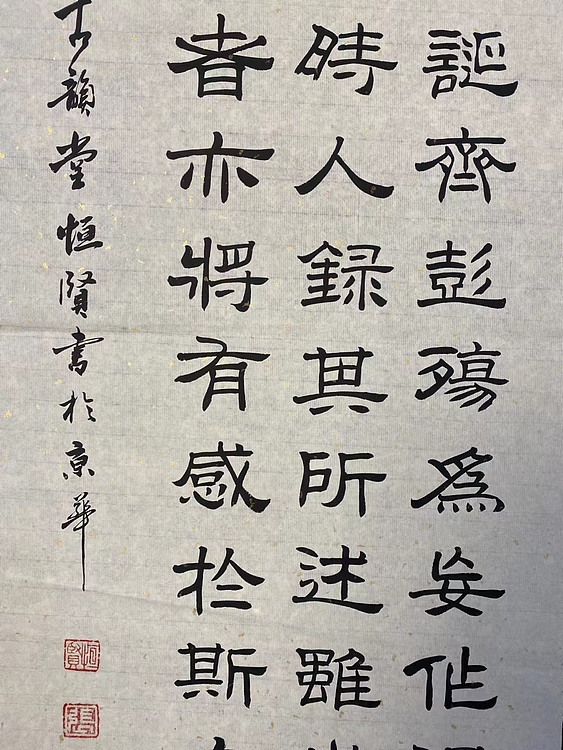 誕齊彭殤爲妄作
時人録其所述雖
者亦將有感於斯
古韻堂恒賢書於京華
恒賢